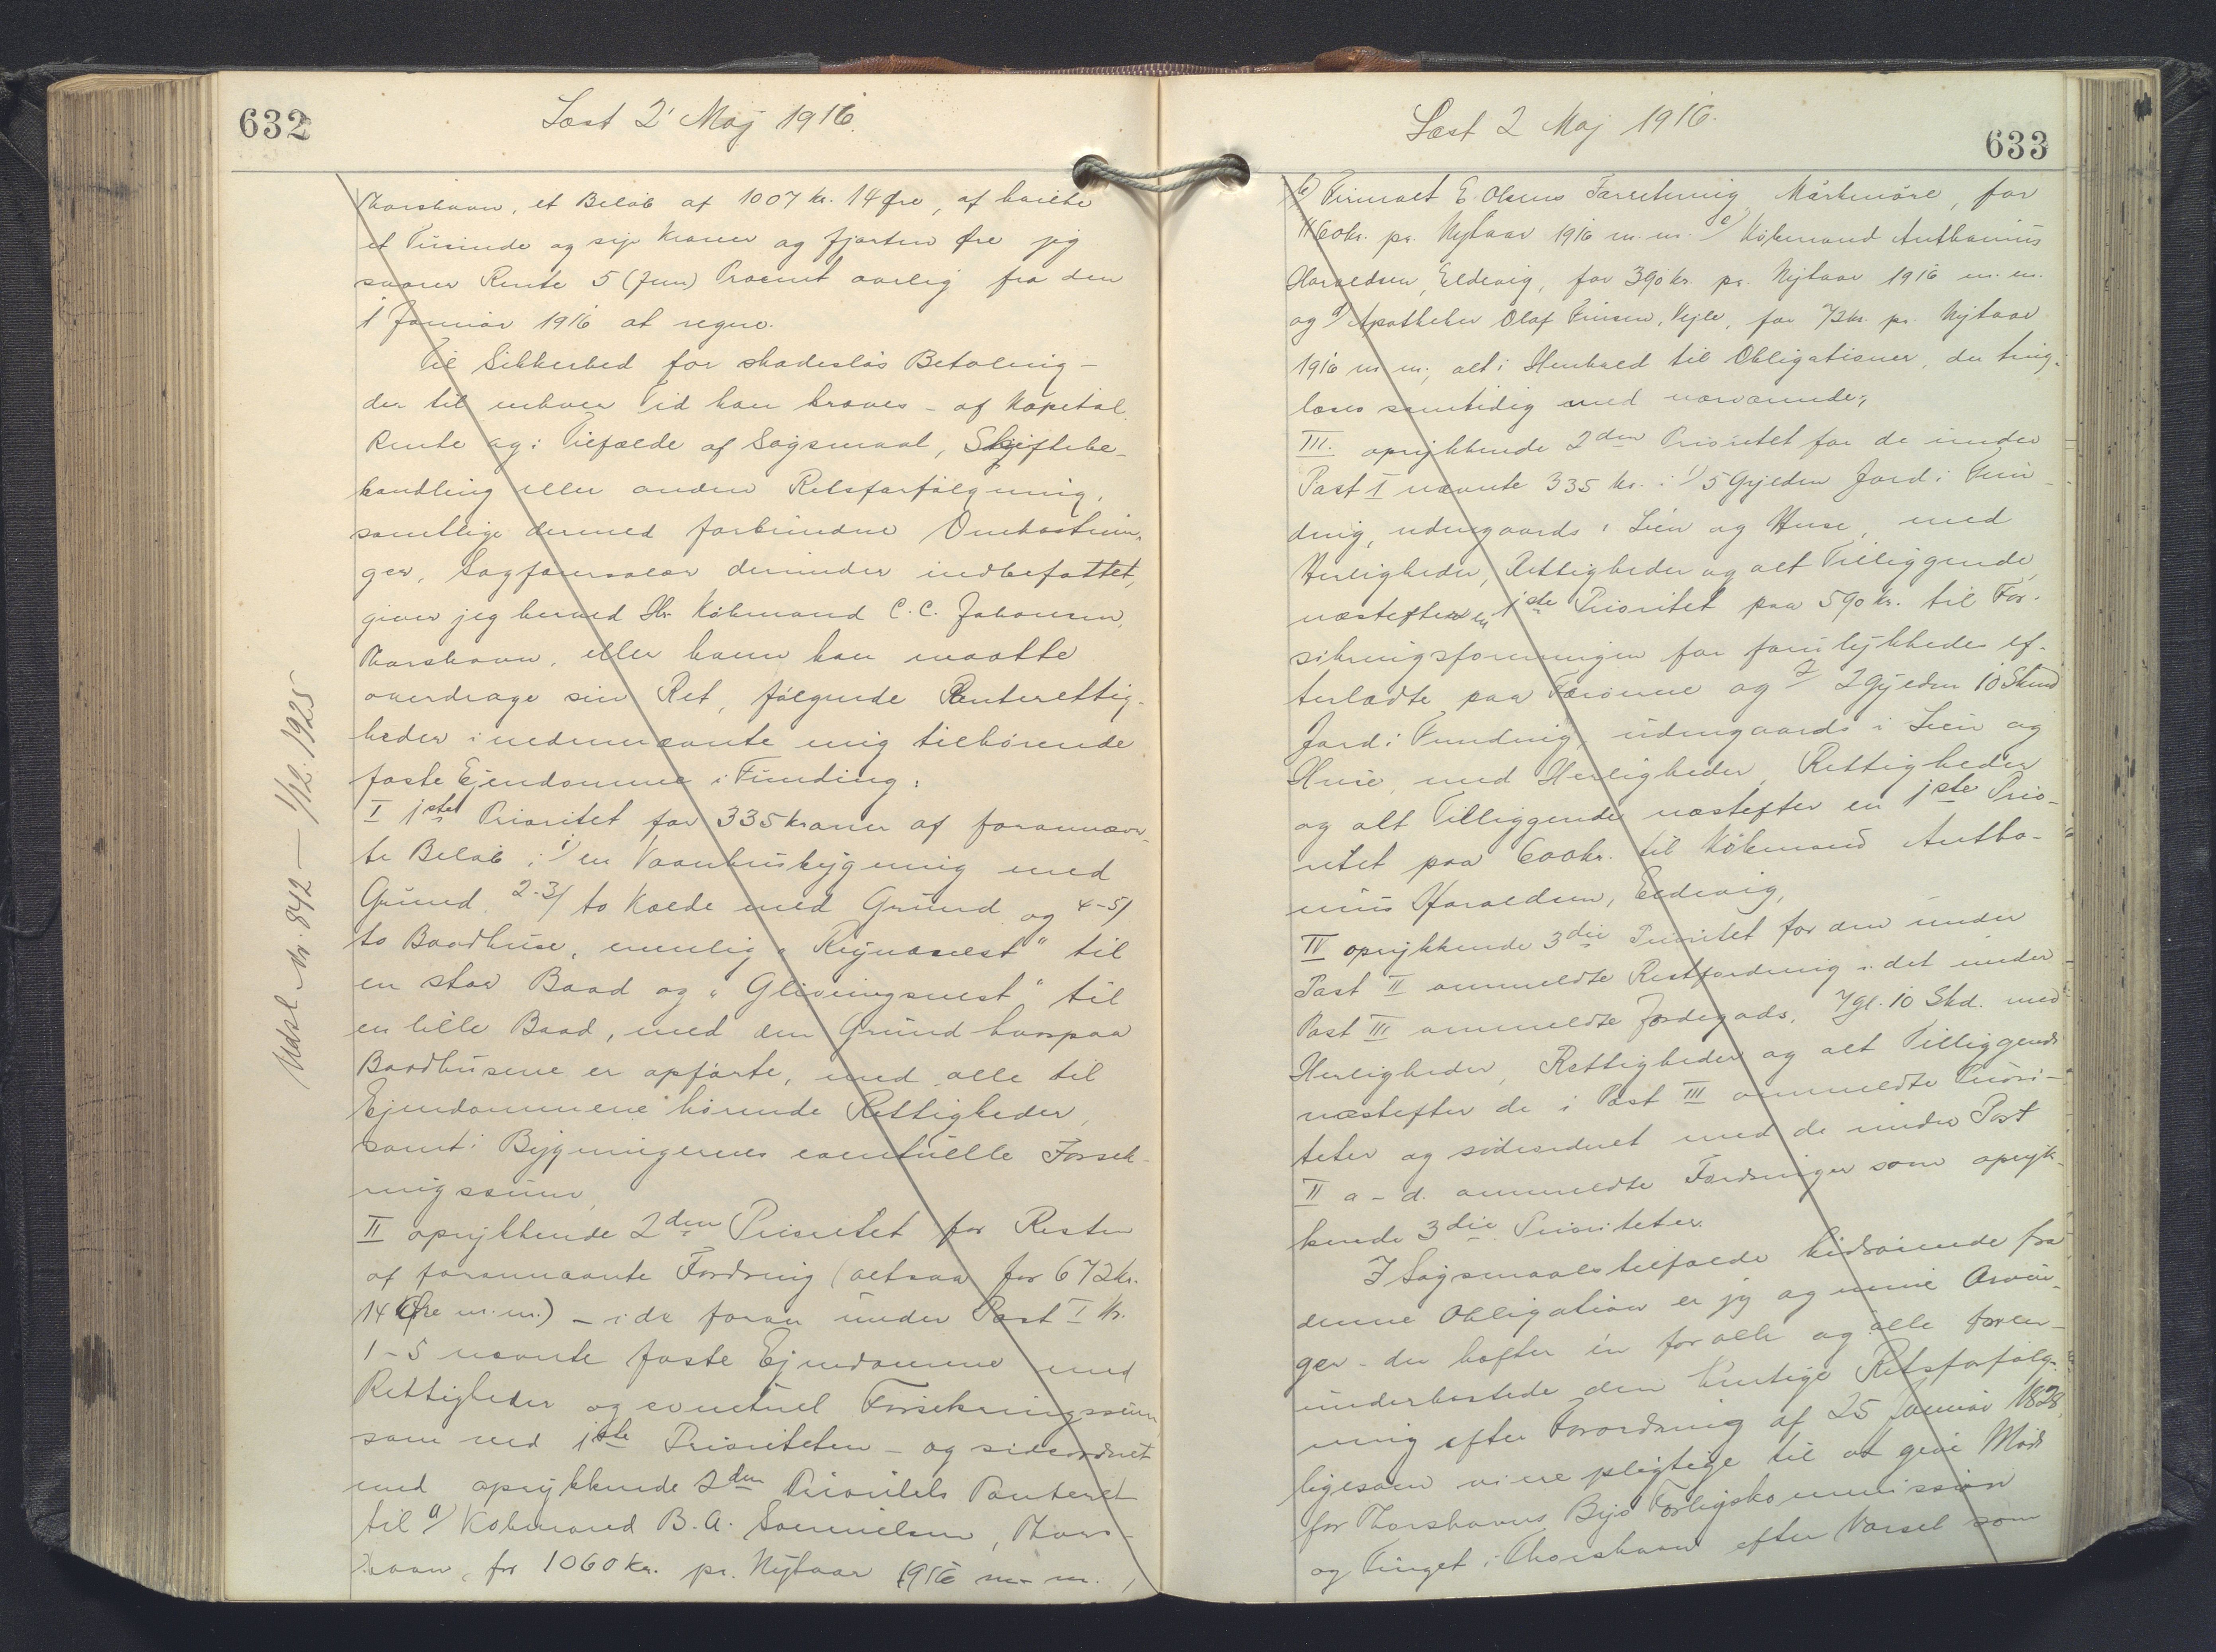 632
Læst 2' Maj 1916.
Thorshavn, et Beløb af 1007 kr. 14 Øre, af hvilke
et Tusinde og syv Kroner og fjorten Øre jeg
svarer Rente 5 (fem) Procent aarlig fra den
1' Januar 1916 at regne.
Til Sikkerhed for skadesløs Betaling -
der til enhver Tid kan kræves - af Kapital,
Rente og i Tilfælde af Søgsmaal, Skiftebe-
handling eller anden Retsforfølgning,
samtlige dermed forbundne Omkostnin-
ger, Sagførersalær derunder indbefattet,
giver jeg herved Hr. Købmand C. C. Johansen,
Thorshavn, eller hvem han maatte
overdrage sin Ret, følgende Panterettig-
heder i nedennævnte mig tilhørende
faste Ejendomme i Funding:
I 1ste Prioritet for 335 Kroner af forannævn-
te Beløb i 1) en Vaanhusbygning med
Grund, 2-3/ to Kælde med Grund og 4-5/
to Baadhuse, nemlig "Reynanest" til
en stor Baad og "Glivingsnest" til
en lille Baad, med den Grund hvorpaa
Baadhusene er opførte, med alle til
Ejendommene hørende Rettigheder,
samt i Bygningernes eventuelle Forsik-
ringssum,
II oprykkende 2den Prioritet for Resten
af forannævnte Fordring (altsaa for 672 kr.
14 Øre m.m.) - i de foran under Post I Nr.
1-5 nævnte faste Ejendomme med
Rettigheder og eventuel Forsikringssum
som ved 1ste Prioriteten - og sideordnet
med oprykkende 2den Prioritets Panteret
til a/ Købmand B. A. Samuelsen, Thors-
havn, for 1060 kr. pr. Nytaar 1916 m. m.,
Udsl. Nr. 842 — 1/12. 1925
Læst 2 Maj 1916.
633
b) Firmaet E. Olsens Forretning, Mårkenøre, for
1160 kr. pr. Nytaar 1916 m. m. c) Købmand Anthonius
Haraldsen, Eldevig, for 390 kr. pr. Nytaar 1916 m. m.
og d) Apotheker Olaf Finsen, Vejle, for 72 kr. pr. Nytaar
1916 m. m., alt i Henhold til Obligationer, der ting-
læses samtidig med nærværende,
III. oprykkende 2den Prioritet for de under
Post I nævnte 335 kr. i 1) 5 Gylden Jord i Fun-
ding, udengaards i Lien og Huse, med
Herligheder, Rettigheder og alt Tilliggende,
næstefter en 1ste Prioritet paa 590 kr. til For-
sikringsforeningen for forulykkedes ef-
terladte paa Færøerne og 2/ 2 Gylden 10 Skind
Jord i Funding, udengaards i Lien og
Huse, med Herligheder, Rettigheder
og alt Tilliggende næstefter en 1ste Prio-
ritet paa 600 kr. til Købmand Antho-
nius Haraldsen, Eldevig,
IV oprykkende 3die Prioritet for den under
Post II ommeldte Restfordring i det under
Post III ommeldte Jordegods, 7 gl. 10 Skd. med
Herligheder, Rettigheder og alt Tilliggende
næstefter de i Post III ommeldte Priori-
teter og sideordnet med de under Post
II a - d. ommeldte Fordringer som opryk-
kende 3die Prioriteter.
I Søgsmaalstilfælde hidrørende fra
denne Obligation er jeg og mine Arvin-
ger - der hæfter én for alle og alle for en -
underkastede den hurtige Retsforfølg-
ning efter Forordning af 25 Januar 1828,
ligesom vi ere pligtige til at give Møde
for Thorshavns Byes Forligskommission
og Tinget i Thorshavn efter Varsel som